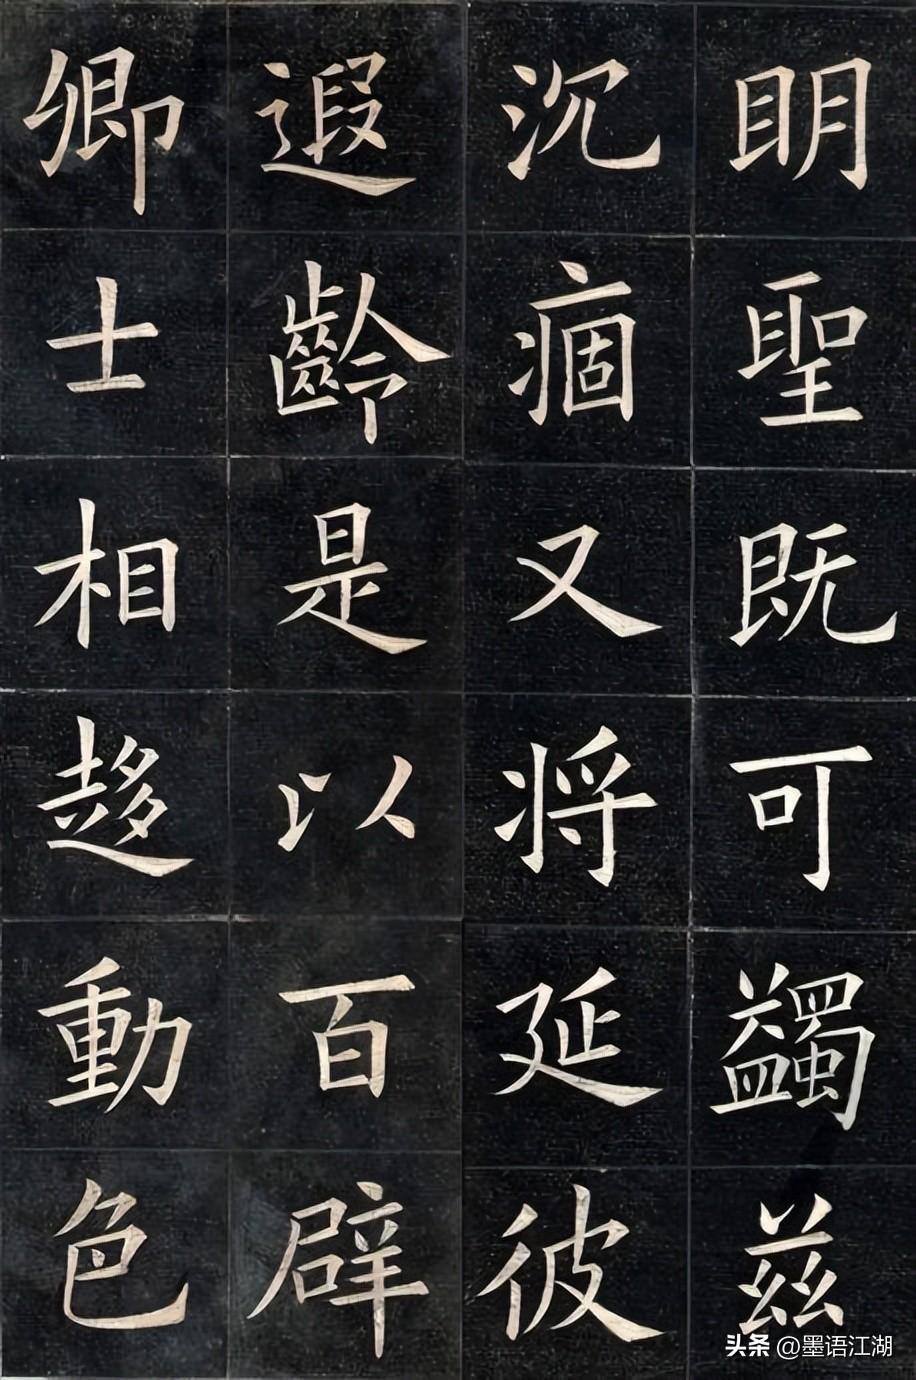 明聖既可蠲茲
沉痼又将延彼
遐齡是以百辟
卿士相趍動色
头条 @墨语江湖